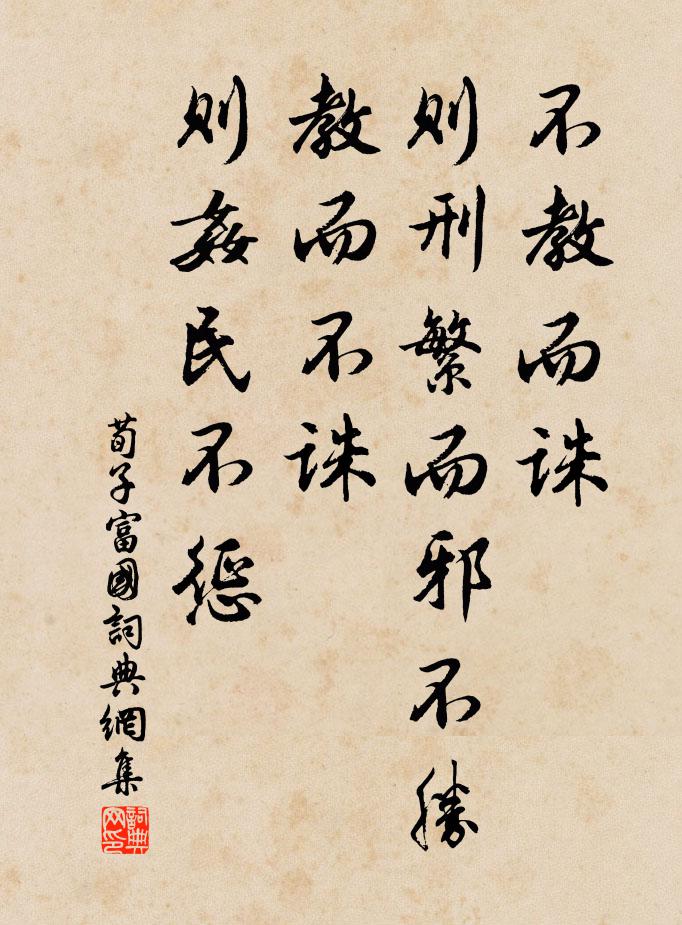 不教而诛
则刑繁而邪不勝
教而不诛
则姦民不惩
荀子富國詞典網集
詞典
网印